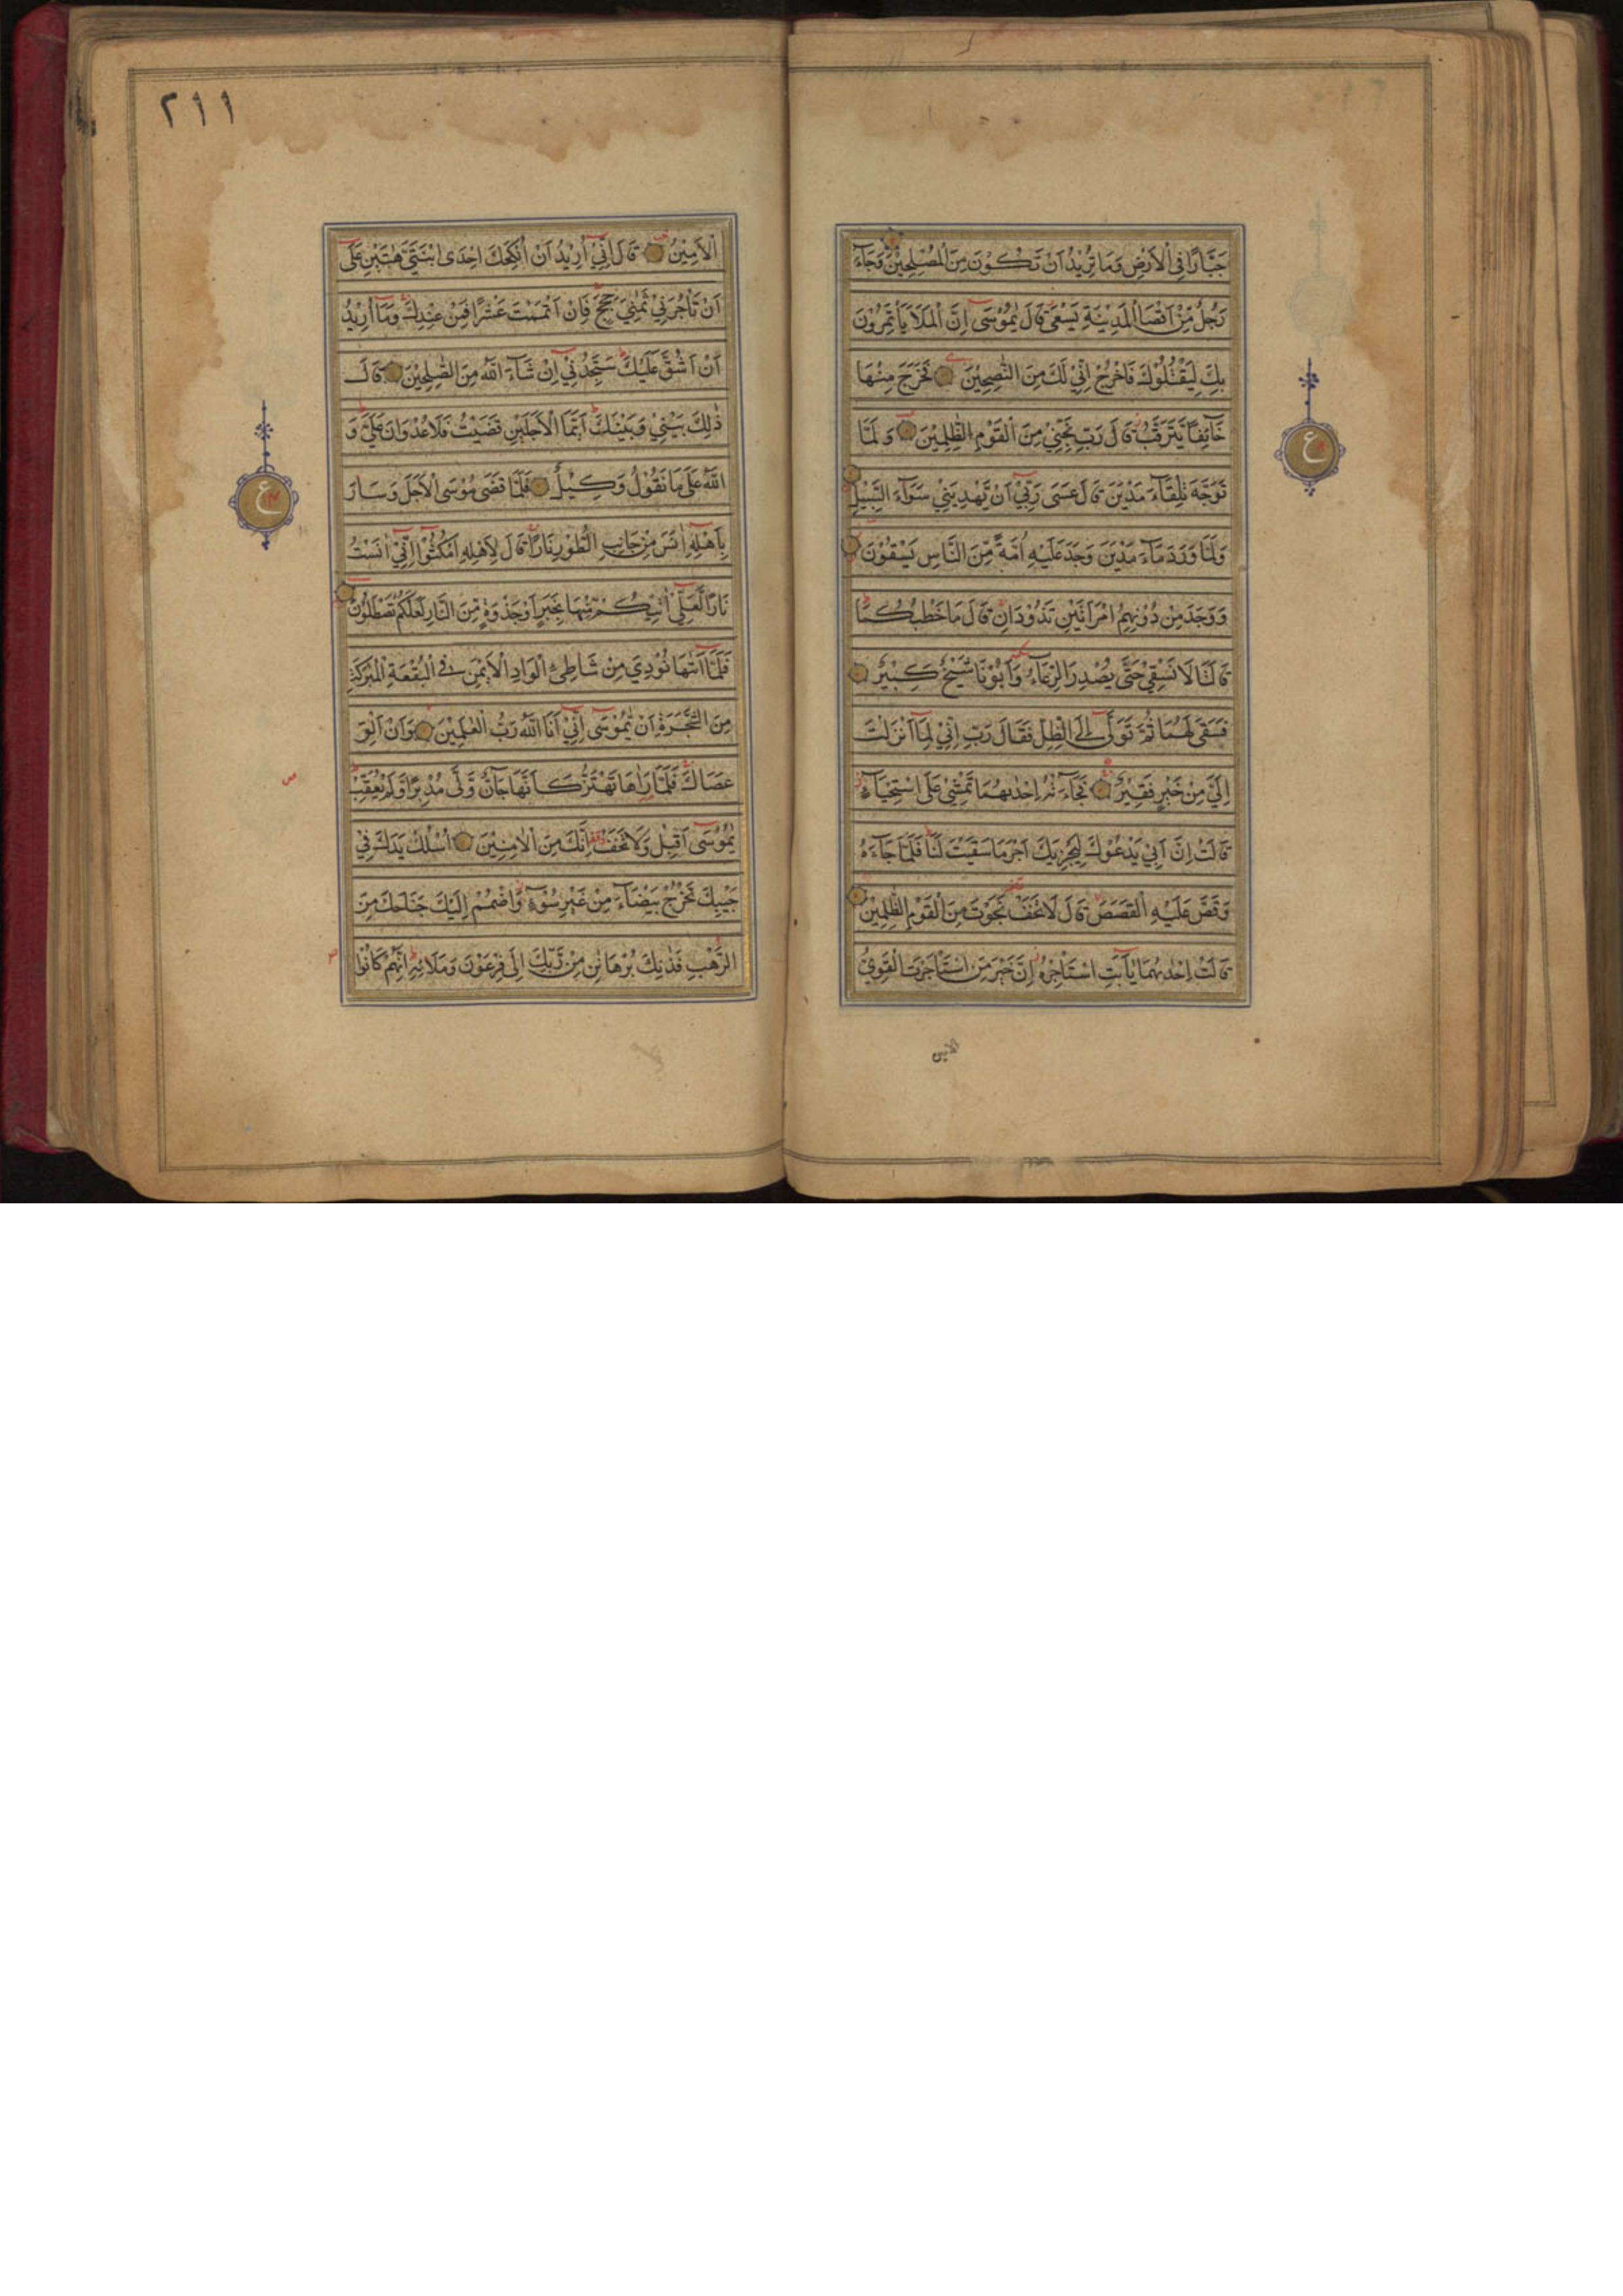 جَبَّارًا فِي الْاَرْضِ وَمَا تُرِيْدُ اَنْ تَكُوْنَ مِنَ الْمُصْلِحِيْنَ وَجَآءَ
رَجُلٌ مِّنْ اَقْصَا الْمَدِيْنَةِ يَسْعٰى قَالَ يٰمُوْسٰٓى اِنَّ الْمَلَاَ يَأْتَمِرُوْنَ
بِكَ لِيَقْتُلُوْكَ فَاخْرُجْ اِنِّيْ لَكَ مِنَ النّٰصِحِيْنَ فَخَرَجَ مِنْهَا
خَآئِفًا يَّتَرَقَّبُ قَالَ رَبِّ نَجِّنِيْ مِنَ الْقَوْمِ الظّٰلِمِيْنَ وَلَمَّا
تَوَجَّهَ تِلْقَآءَ مَدْيَنَ قَالَ عَسٰى رَبِّيْٓ اَنْ يَّهْدِيَنِيْ سَوَآءَ السَّبِيْلِ
وَلَمَّا وَرَدَ مَآءَ مَدْيَنَ وَجَدَ عَلَيْهِ اُمَّةً مِّنَ النَّاسِ يَسْقُوْنَ
وَوَجَدَ مِنْ دُوْنِهِمُ امْرَاَتَيْنِ تَذُوْدَانِ قَالَ مَا خَطْبُكُمَا
قَالَتَا لَا نَسْقِيْ حَتّٰى يُصْدِرَ الرِّعَآءُ وَاَبُوْنَا شَيْخٌ كَبِيْرٌ
فَسَقٰى لَهُمَا ثُمَّ تَوَلّٰٓى اِلَى الظِّلِّ فَقَالَ رَبِّ اِنِّيْ لِمَآ اَنْزَلْتَ
اِلَيَّ مِنْ خَيْرٍ فَقِيْرٌ فَجَآءَتْهُ اِحْدٰىهُمَا تَمْشِيْ عَلَى اسْتِحْيَآءٍ
قَالَتْ اِنَّ اَبِيْ يَدْعُوْكَ لِيَجْزِيَكَ اَجْرَ مَا سَقَيْتَ لَنَا فَلَمَّا جَآءَهُ
وَقَصَّ عَلَيْهِ الْقَصَصَ قَالَ لَا تَخَفْ نَجَوْتَ مِنَ الْقَوْمِ الظّٰلِمِيْنَ
قَالَتْ اِحْدٰىهُمَا يٰٓاَبَتِ اسْتَأْجِرْهُ اِنَّ خَيْرَ مَنِ اسْتَأْجَرْتَ الْقَوِيُّ
الامين
ع
٢١١
الْاَمِيْنُ قَالَ اِنِّيْٓ اُرِيْدُ اَنْ اُنْكِحَكَ اِحْدَى ابْنَتَيَّ هٰتَيْنِ عَلٰٓى
اَنْ تَأْجُرَنِيْ ثَمٰنِيَ حِجَجٍ فَاِنْ اَتْمَمْتَ عَشْرًا فَمِنْ عِنْدِكَ وَمَآ اُرِيْدُ
اَنْ اَشُقَّ عَلَيْكَ سَتَجِدُنِيْٓ اِنْ شَآءَ اللّٰهُ مِنَ الصّٰلِحِيْنَ قَالَ
ذٰلِكَ بَيْنِيْ وَبَيْنَكَ اَيَّمَا الْاَجَلَيْنِ قَضَيْتُ فَلَا عُدْوَانَ عَلَيَّ وَ
اللّٰهُ عَلٰى مَا نَقُوْلُ وَكِيْلٌ فَلَمَّا قَضٰى مُوْسَى الْاَجَلَ وَسَارَ
بِاَهْلِهٖٓ اٰنَسَ مِنْ جَانِبِ الطُّوْرِ نَارًا قَالَ لِاَهْلِهِ امْكُثُوْٓا اِنِّيْٓ اٰنَسْتُ
نَارًا لَّعَلِّيْٓ اٰتِيْكُمْ مِّنْهَا بِخَبَرٍ اَوْ جَذْوَةٍ مِّنَ النَّارِ لَعَلَّكُمْ تَصْطَلُوْنَ
فَلَمَّآ اَتٰىهَا نُوْدِيَ مِنْ شَاطِئِ الْوَادِ الْاَيْمَنِ فِى الْبُقْعَةِ الْمُبٰرَكَةِ
مِنَ الشَّجَرَةِ اَنْ يّٰمُوْسٰٓى اِنِّيْٓ اَنَا اللّٰهُ رَبُّ الْعٰلَمِيْنَ وَاَنْ اَلْقِ
عَصَاكَ فَلَمَّا رَاٰهَا تَهْتَزُّ كَاَنَّهَا جَآنٌّ وَّلّٰى مُدْبِرًا وَّلَمْ يُعَقِّبْ
يٰمُوْسٰٓى اَقْبِلْ وَلَا تَخَفْ اِنَّكَ مِنَ الْاٰمِنِيْنَ اُسْلُكْ يَدَكَ فِيْ
جَيْبِكَ تَخْرُجْ بَيْضَآءَ مِنْ غَيْرِ سُوْٓءٍ وَّاضْمُمْ اِلَيْكَ جَنَاحَكَ مِنَ
الرَّهْبِ فَذٰنِكَ بُرْهَانٰنِ مِنْ رَّبِّكَ اِلٰى فِرْعَوْنَ وَمَلَائِهٖ اِنَّهُمْ كَانُوْا
ع